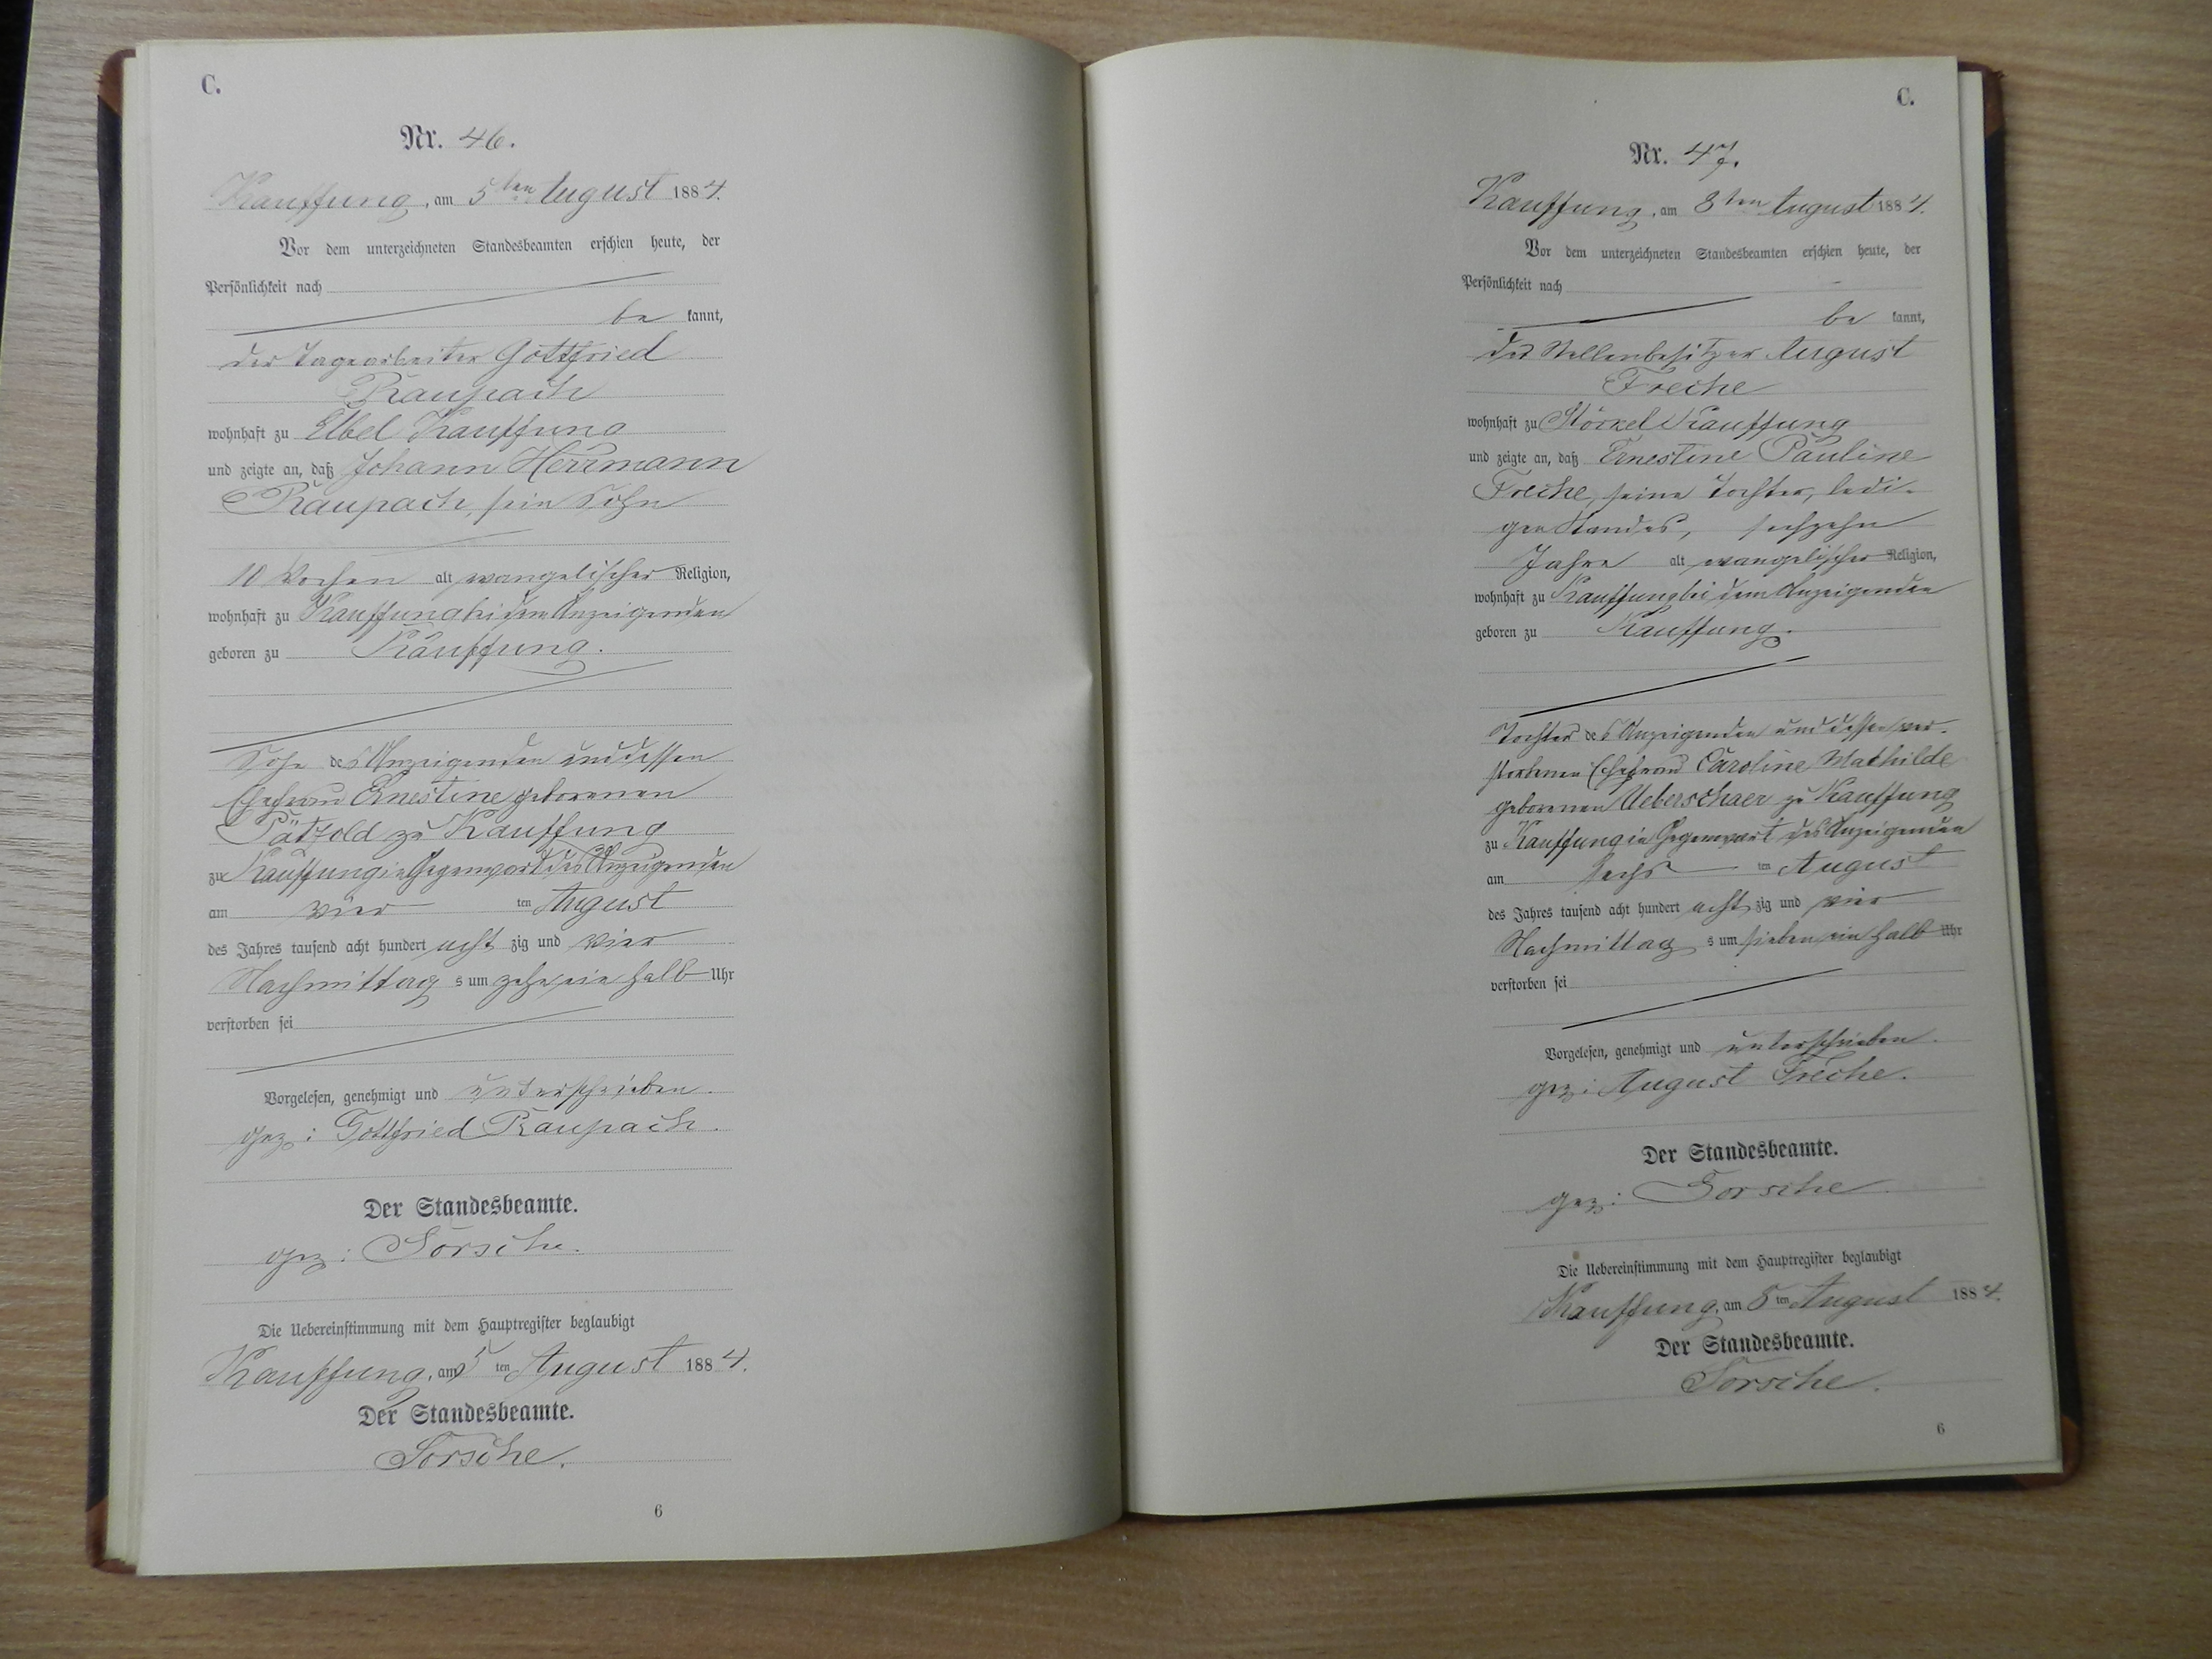 C.
Nr. 46.
Kauffung, am 5ten August 1884.
Vor dem unterzeichneten Standesbeamten erschien heute, der
Persönlichkeit nach
be kannt,
der Tagearbeiter Gottfried
Raupach
wohnhaft zu Elbel Kauffung
und zeigte an, daß Johann Herrmann
Raupach, sein Sohn
10 Wochen alt, evangelischer Religion,
wohnhaft zu Kauffung bei dem Anzeigenden
geboren zu Kauffung.
Sohn des Anzeigenden und dessen
Ehefrau Ernestine geborenen
Pätzold zu Kauffung
zu Kauffung in Gegenwart des Anzeigenden
am vier ten August
des Jahres tausend acht hundert acht zig und vier
Nachmittag s um zehn ein halb Uhr
verstorben sei
Vorgelesen, genehmigt und unterschrieben.
gez: Gottfried Raupach.
Der Standesbeamte.
gez: Torsche.
Die Uebereinstimmung mit dem Hauptregister beglaubigt
Kauffung, am 5 ten August 1884.
Der Standesbeamte.
Torsche.
6
C.
Nr. 47.
Kauffung, am 8ten August 1884.
Vor dem unterzeichneten Standesbeamten erschien heute, der
Persönlichkeit nach
be kannt,
der Stellenbesitzer August
Freche
wohnhaft zu Störkel Kauffung
und zeigte an, daß Ernestine Pauline
Freche, seine Tochter, ledi-
gen Standes, sechzehn
Jahre alt, evangelischer Religion,
wohnhaft zu Kauffung bei dem Anzeigenden
geboren zu Kauffung.
Tochter des Anzeigenden und dessen ver-
storbenen Ehefrau Caroline Mathilde
geborenen Ueberschaer zu Kauffung
zu Kauffung in Gegenwart des Anzeigenden
am sechs ten August
des Jahres tausend acht hundert acht zig und vier
Nachmittag s um sieben ein halb Uhr
verstorben sei
Vorgelesen, genehmigt und unterschrieben.
gez: August Freche.
Der Standesbeamte.
gez: Torsche
Die Uebereinstimmung mit dem Hauptregister beglaubigt
Kauffung, am 8 ten August 1884.
Der Standesbeamte.
Torsche.
6